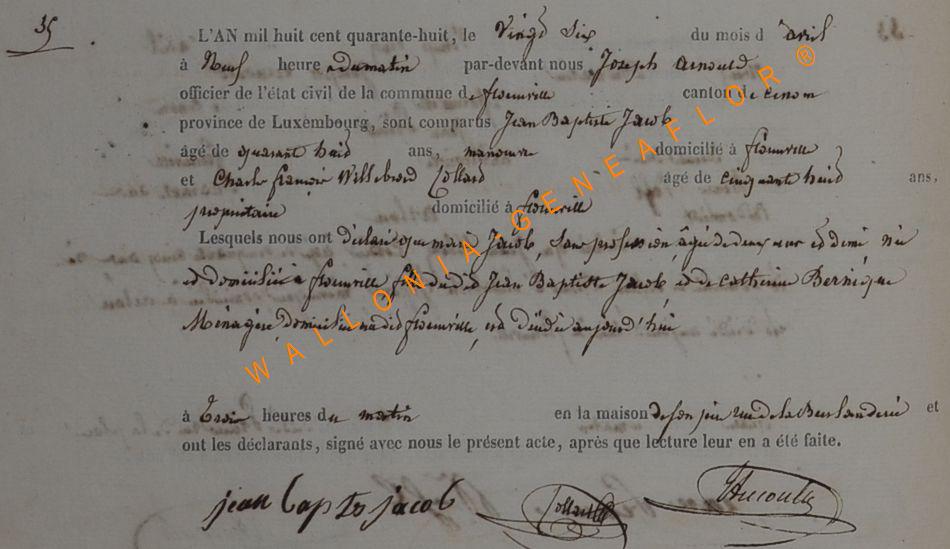 35
L'AN mil huit cent quarante-huit, le Vingt Six du mois d'avril
à Neuf heure du matin par-devant nous Joseph Arnould
officier de l'état civil de la commune de florenville canton de
province de Luxembourg, sont comparus Jean Baptiste Jacob
âgé de quarant huit ans, manoeuvre domicilié à florenville
et Charle francois Willebrord Collard âgé de cinquant huit ans,
propriétaire domicilié à florenville
Lesquels nous ont déclaré que marie Jacob, sans profession, âgée de deux ans et demi née
et domiciliée à florenville fille dudit Jean Baptiste Jacob, et de Catherine Bernique
Ménagère, domiciliée audit florenville, est décédée aujourd'hui
à trois heures du matin en la maison de son père rue de la et
ont les déclarants, signé avec nous le présent acte, après que lecture leur en a été faite.
jean bapts jacob Collard
WALLONIA-GENEAFLOR ®